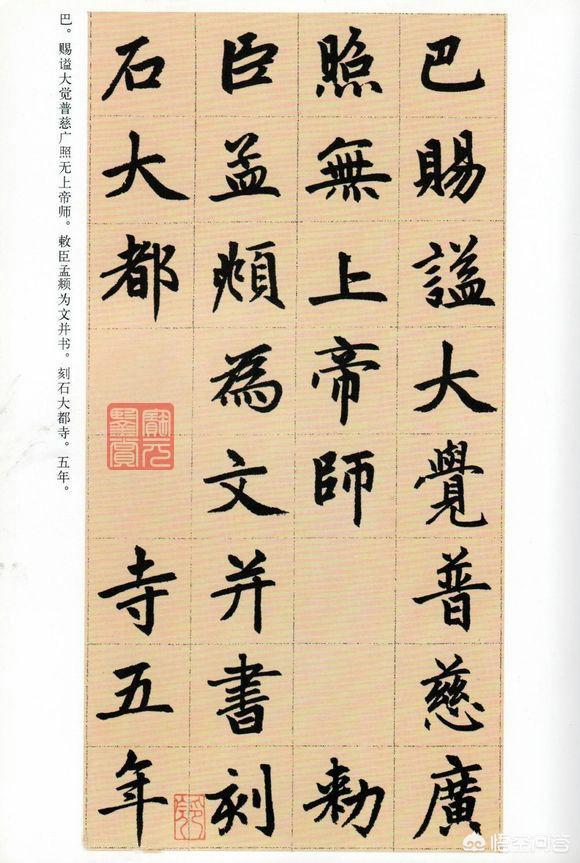 巴賜謚大覺普慈廣
照無上帝師 勅
臣孟頫為文并書刻
石大都 寺五年
巴。赐谥大觉普慈广照无上帝师。敕臣孟頫为文并书。刻石大都寺。五年。
悟空问答